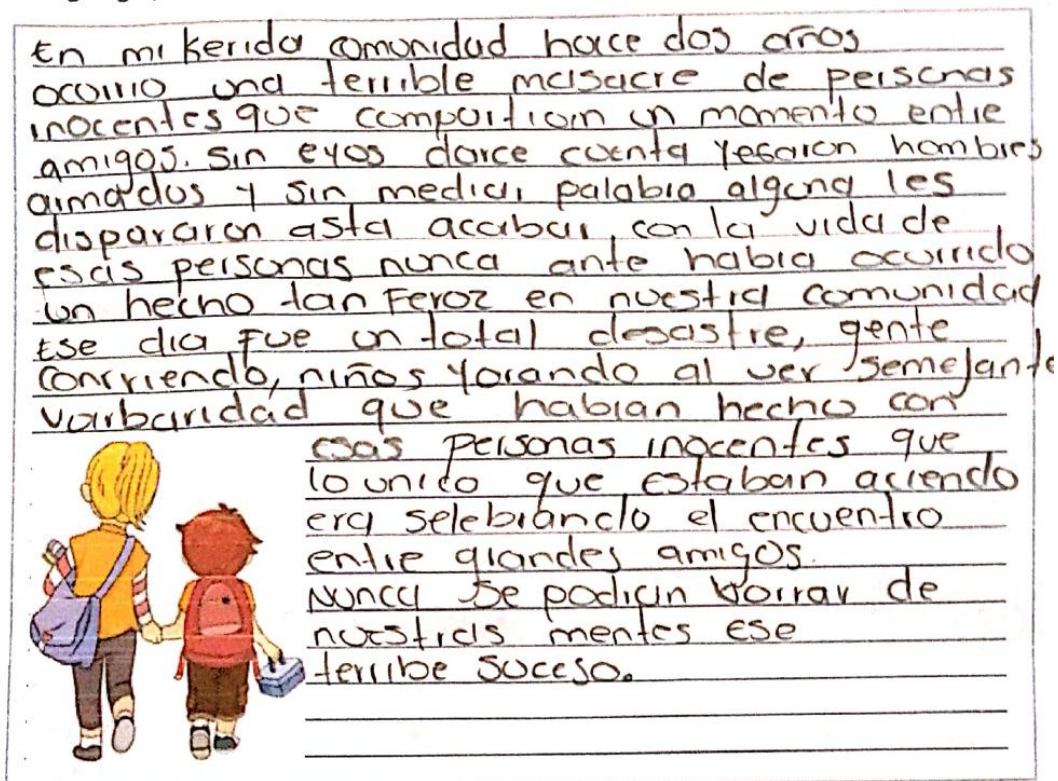 En mi kerida comunidad hace dos años
ocurrio una terrible masacre de personas
inocentes que compartioin un momento entre
amigos. Sin eyos darce cuenta yegaron hombres
armados y sin mediar palabra alguna les
dispararon asta acabar con la vida de
esas personas nunca ante habia ocurrido
un hecho tan Feroz en nuestra comunidad
Ese dia Fue un total desastre, gente
conrriendo, niños yorando al ver semejante
varbaridad que habian hecho con
esas personas inocentes que
lo unico que estaban aciendo
era selebrando el encuentro
entre grandes amigos.
Nunca se podian borrar de
nuestras mentes ese
terribe suceso.